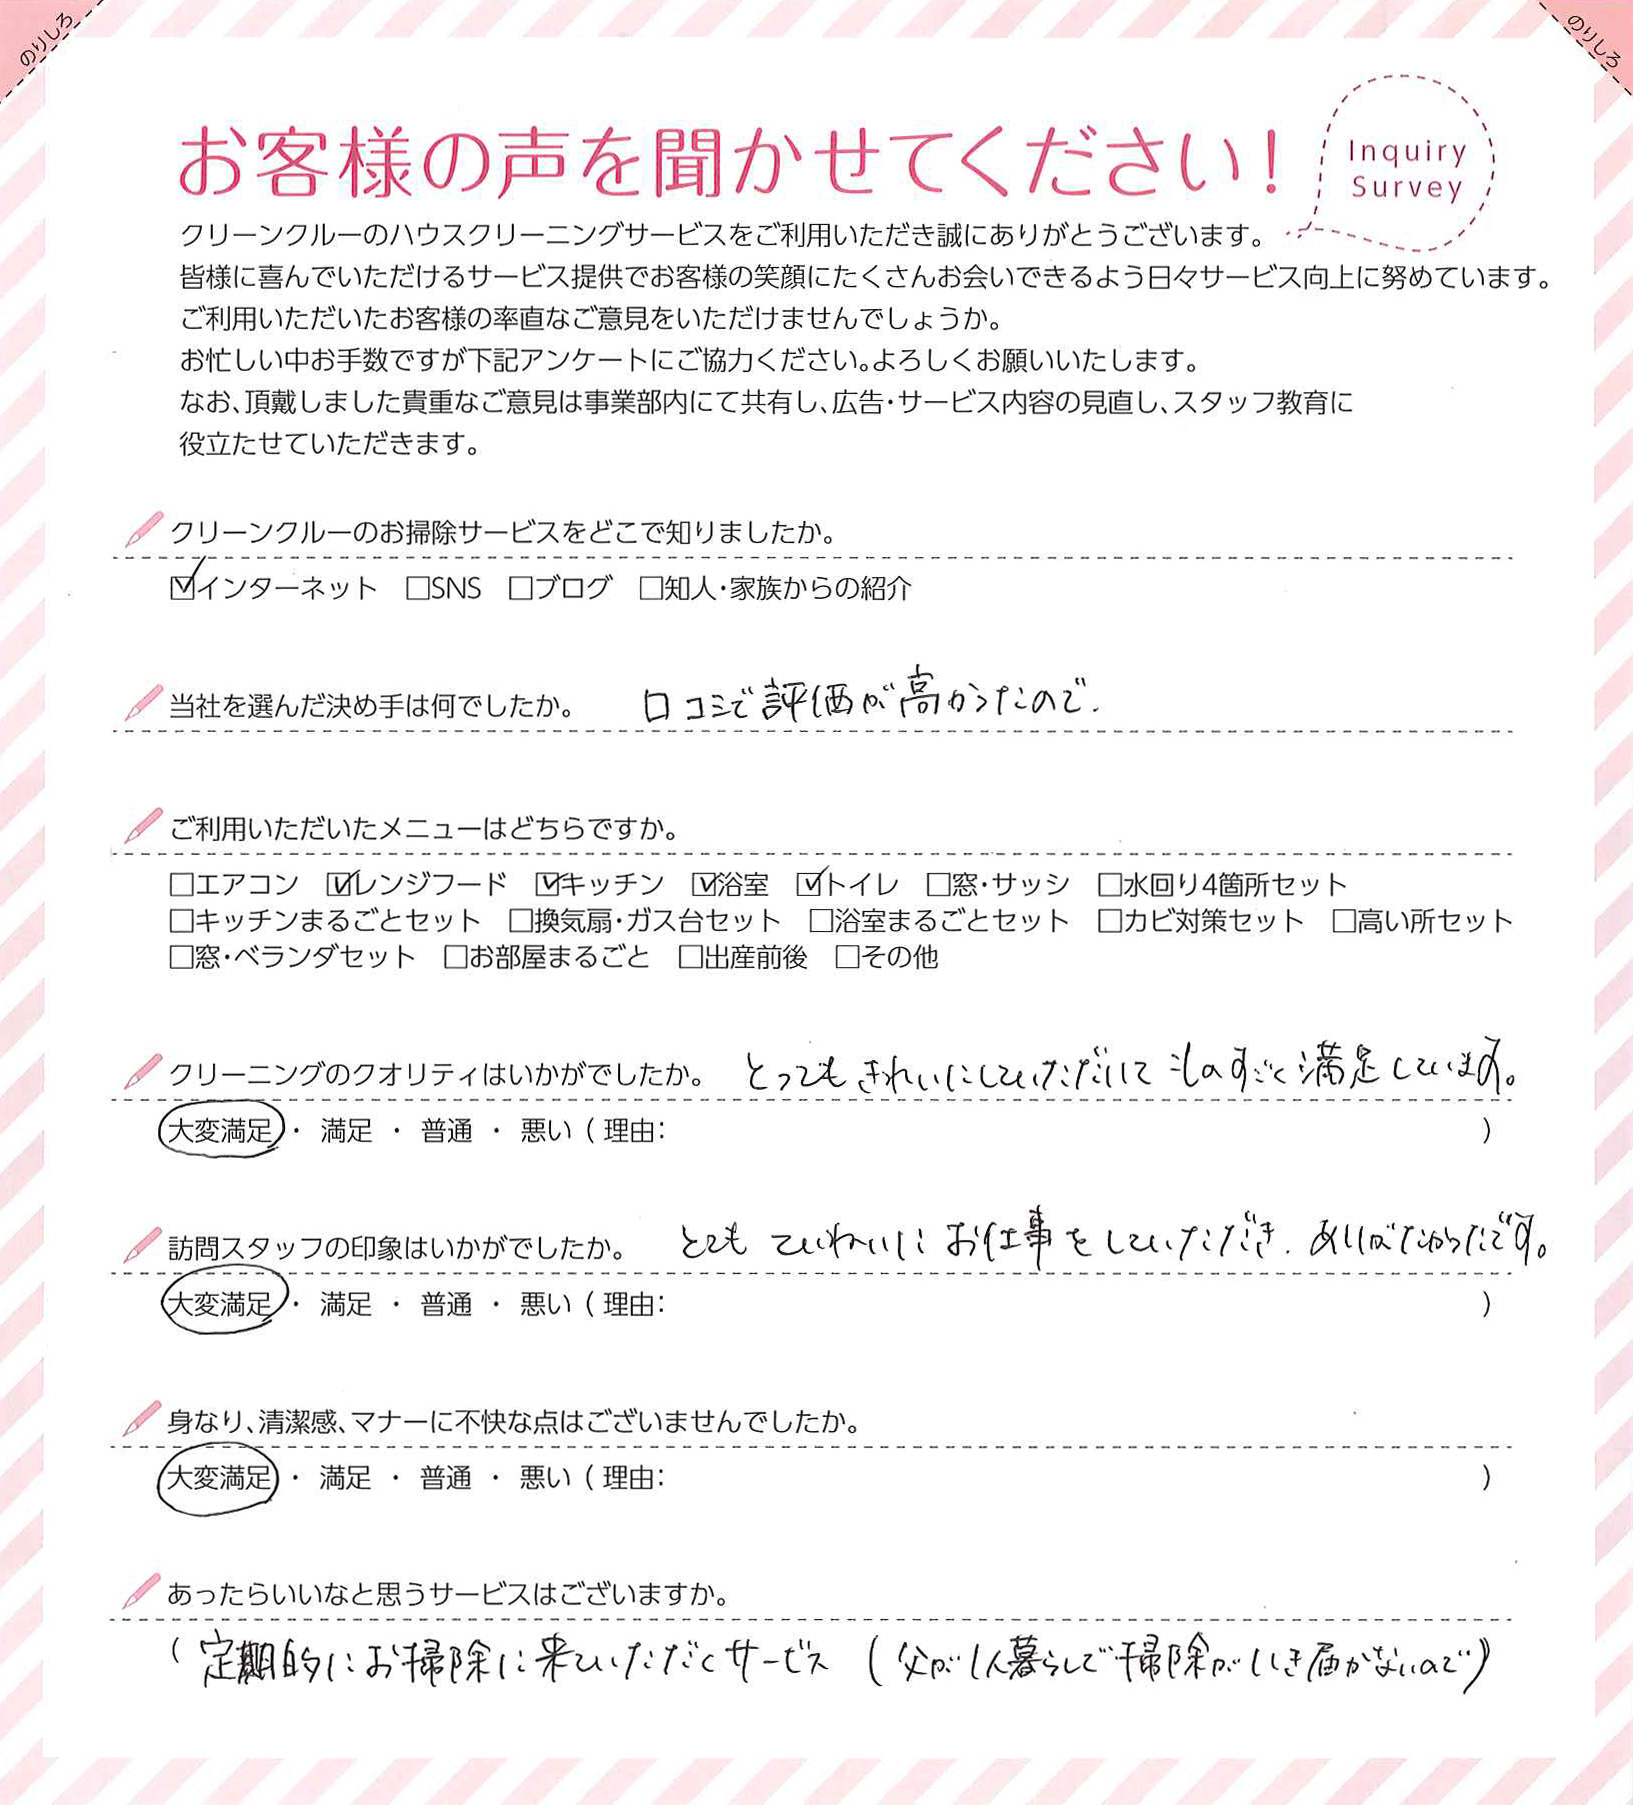 のりしろ
のりしろ
お客様の声を聞かせてください!
Inquiry
Survey
クリーンクルーのハウスクリーニングサービスをご利用いただき誠にありがとうございます。
皆様に喜んでいただけるサービス提供でお客様の笑顔にたくさんお会いできるよう日々サービス向上に努めています。
ご利用いただいたお客様の率直なご意見をいただけませんでしょうか。
お忙しい中お手数ですが下記アンケートにご協力ください。よろしくお願いいたします。
なお、頂戴しました貴重なご意見は事業部内にて共有し、広告・サービス内容の見直し、スタッフ教育に
役立たせていただきます。
クリーンクルーのお掃除サービスをどこで知りましたか。
☑インターネット □SNS □ブログ □知人・家族からの紹介
当社を選んだ決め手は何でしたか。 口コミで評価が高かったので.
ご利用いただいたメニューはどちらですか。
□エアコン ☑レンジフード ☑キッチン ☑浴室 ☑トイレ □窓・サッシ □水回り4箇所セット
□キッチンまるごとセット □換気扇・ガス台セット □浴室まるごとセット □カビ対策セット □高い所セット
□窓・ベランダセット □お部屋まるごと □出産前後 □その他
クリーニングのクオリティはいかがでしたか。 とってもきれいにしていただいてものすごく満足しています。
大変満足 ・ 満足 ・ 普通 ・ 悪い ( 理由: )
訪問スタッフの印象はいかがでしたか。 とてもていねいにお仕事をしていただき. ありがたかったです。
大変満足 ・ 満足 ・ 普通 ・ 悪い ( 理由: )
身なり、清潔感、マナーに不快な点はございませんでしたか。
大変満足 ・ 満足 ・ 普通 ・ 悪い ( 理由: )
あったらいいなと思うサービスはございますか。
( 定期的にお掃除に来ていただくサービス (父が1人暮らしで掃除がいき届かないので)